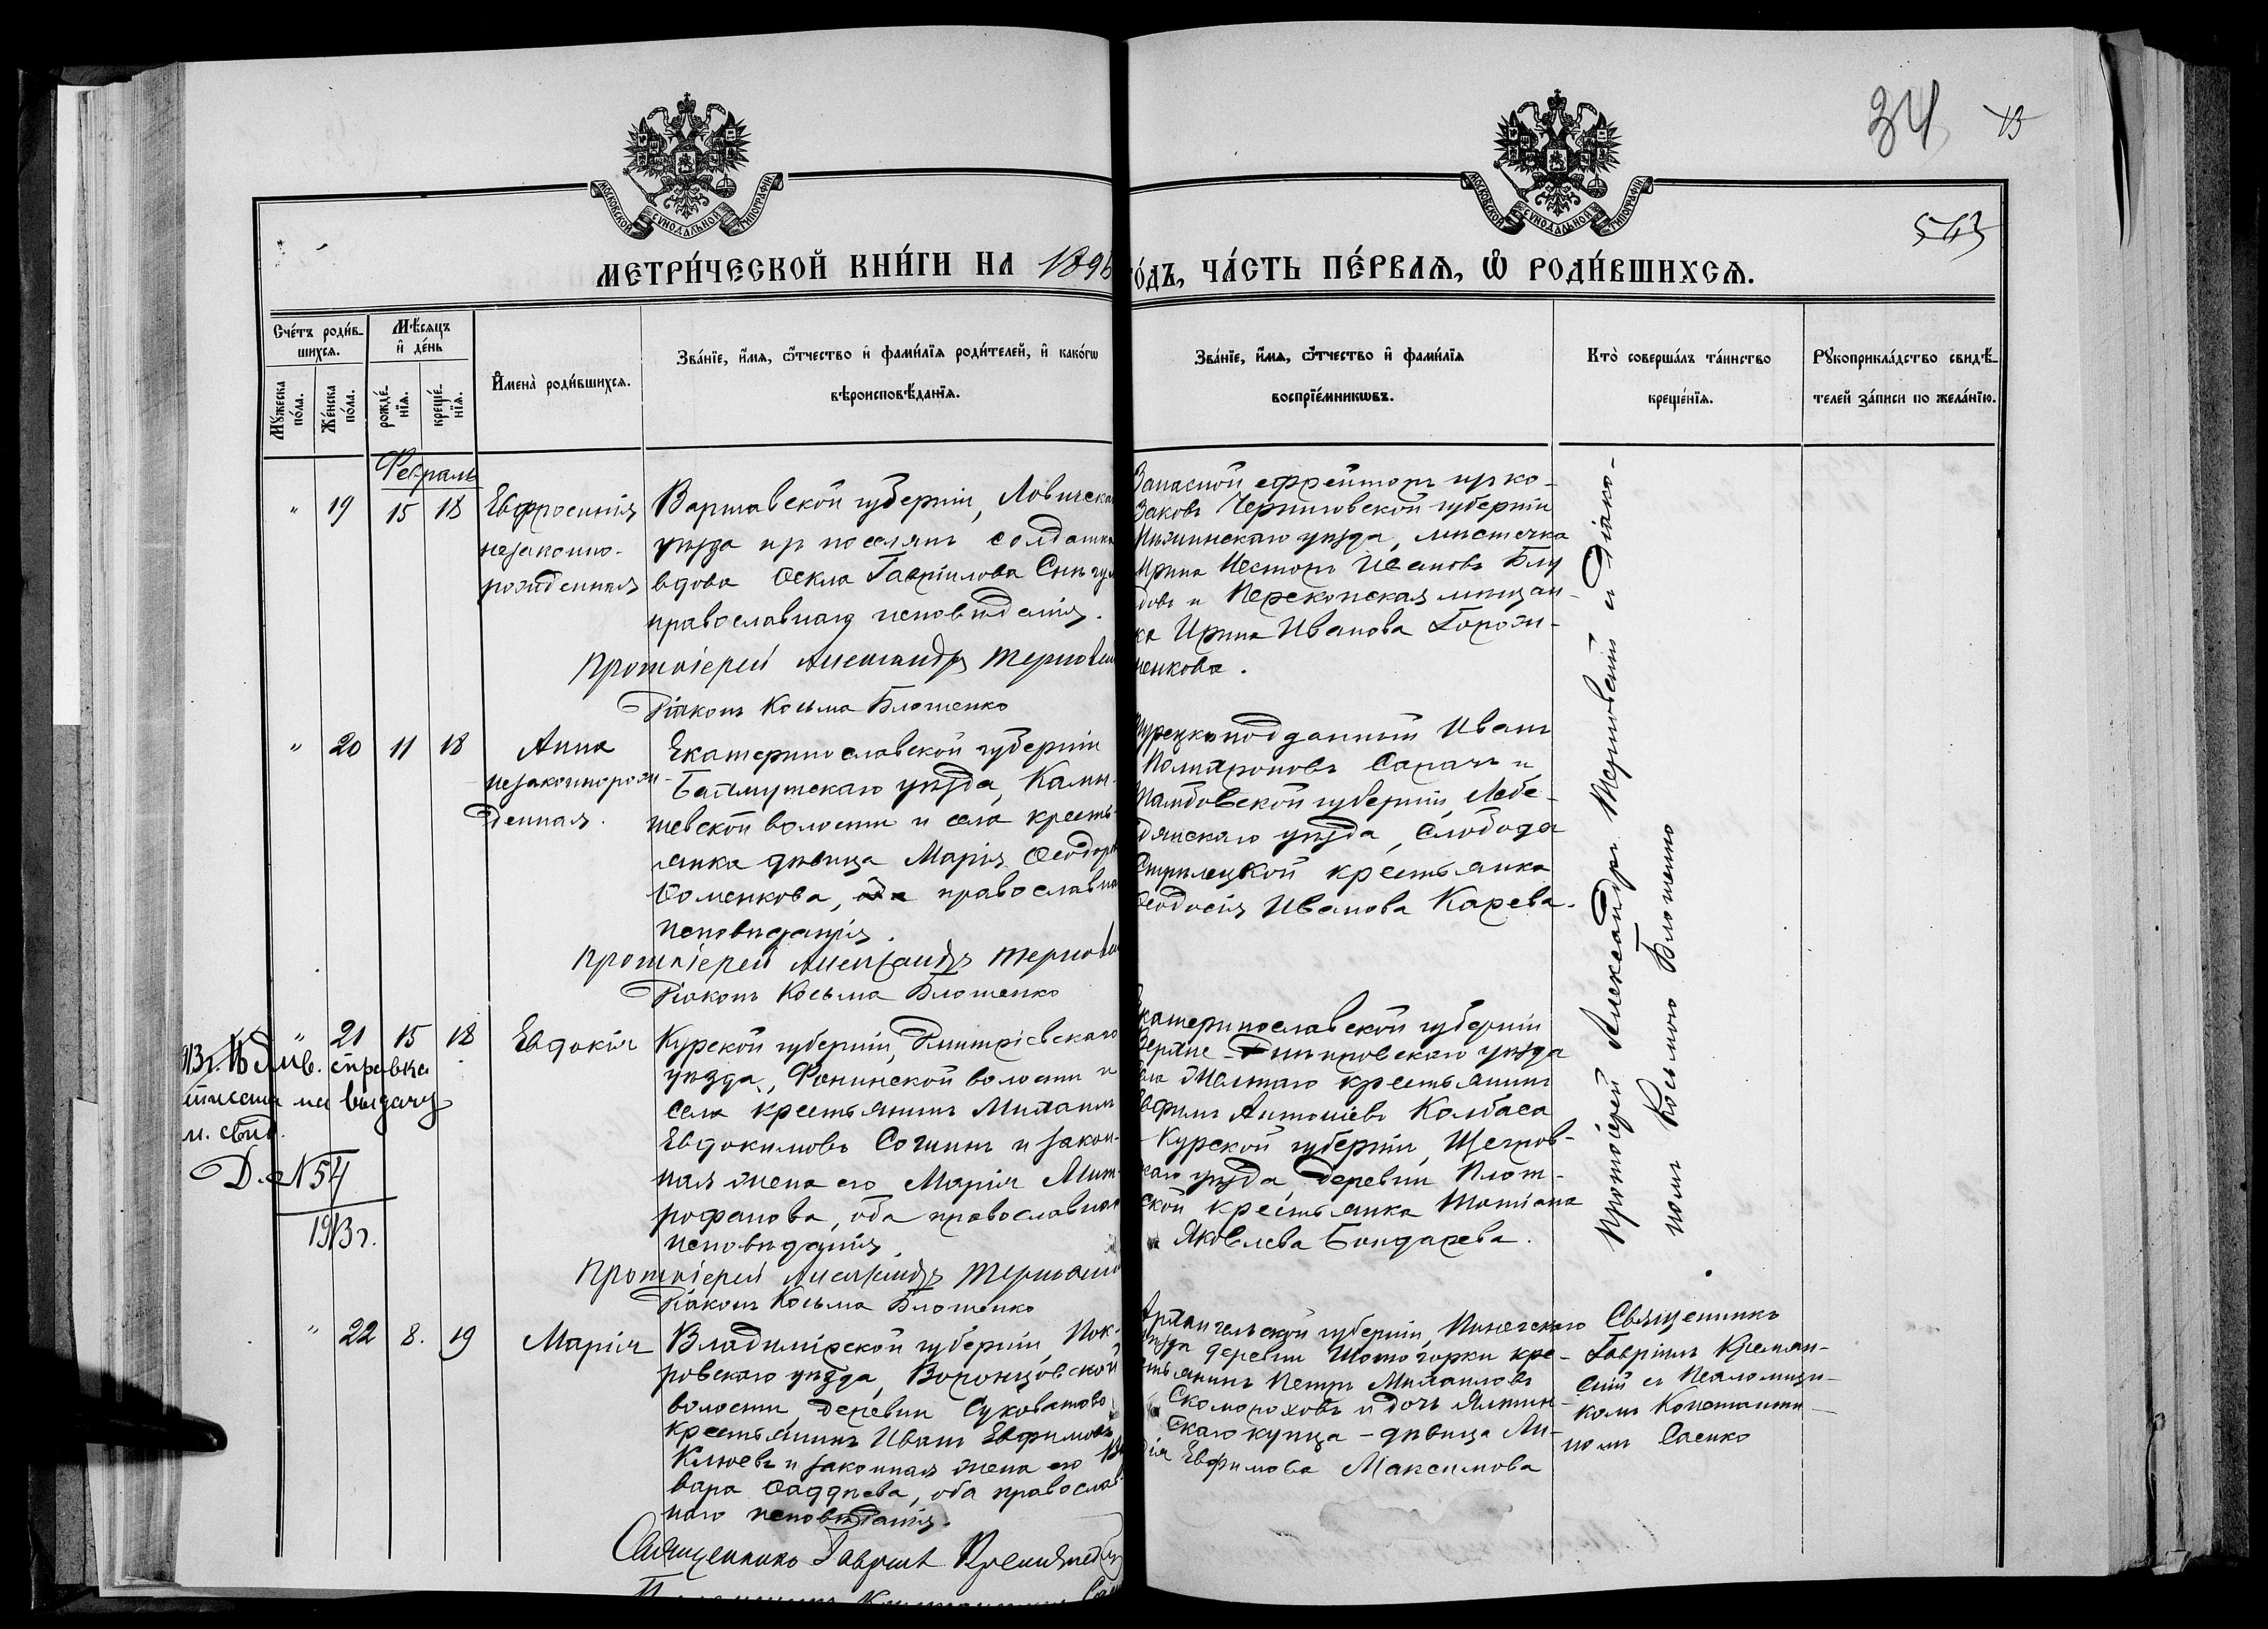 34 13
543
МОСКОВСКОЙ СѴНОДАЛЬНОЙ ТИПОГРАФІИ
МОСКОВСКОЙ СѴНОДАЛЬНОЙ ТИПОГРАФІИ
МЕТРИ́ЧЕСКОЙ КНИ́ГИ НА 1896
ГО́ДЪ, ЧА́СТЬ ПЕ́РВАѦ, Ѽ РОДИ́ВШИХСѦ.
Сче́тъ роди́в-
шихся.
Мѣ́сяцъ
и де́нь
Му́жеска
по́ла.
Же́нска
по́ла.
рожде́-
нїя.
креще́-
нїя.
Имена̀ роди́вшихся.
Зва́нїе, и́мя, ѻ́тчество и фами́лїя роди́телей, и како́гѡ
вѣроисповѣ́данїя.
Зва́нїе, и́мя, ѻ́тчество и фами́лїя
воспрїе́мникѡвъ.
Кто̀ соверша́лъ та́инство
креще́нїя.
Рꙋкоприкла́дство свидѣ́-
телей за́писи по жела́нїю.
Февраль
" 19 15 18
Евфросинія
незаконно-
рожденная
Варшавской губерніи, Ловичска
уѣзда изъ поселянъ солдатка
вдова Ѳекла Гавріилова Снѣгу
православнаго исповѣданія.
Протоіерей Александръ Тернов
Діаконъ Косьма Блошенко
Запасной ефрейторъ изъ ко-
заковъ Черниговской губерніи
Нѣжинскаго уѣзда, мѣстечка
Мрина Несторъ Ивановъ Блу
довъ и Перекопская мѣщан-
ка Ирина Иванова Горож-
ченкова.
" 20 11 18
Анна
незаконнорож-
денная.
Екатеринославской губерніи
Бахмутскаго уѣзда, Камы-
шевской волости и села кресть-
янка дѣвица Марія Ѳеодоро
Ѳоменкова, православна
исповѣданія.
Протоіерей Александръ Тернов
Діаконъ Косьма Блошенко
Турецкоподданный Иванъ
Полихроновъ Сарачъ и
Тамбовской губерніи, Лебе-
дянскаго уѣзда, слобода
Стрѣлецкой крестьянка
Ѳеодосія Иванова Карева.
" 21 15 18
Евдокія
Курской губерніи, Дмитріевскаго
уѣзда, Фонинской волости и
села крестьянинъ Михаилъ
Евдокимовъ Сочинъ и закон-
ная жена его Марія Мит-
рофанова, оба православнаго
исповѣданія.
Протоіерей Александръ Тернов
Діаконъ Косьма Блошенко
Екатеринославской губерніи
Верхне-Днѣпровскаго уѣзда
села Желтаго крестьянинъ
Евфимъ Антоніевъ Колбаса
Курской губерніи, Щегров-
скаго уѣзда, деревни Плот-
ской крестьянка Татіана
Яковлева Бондарева.
Протоіерей Александръ Терновскій съ Діако-
номъ Косьмою Блошенко
913 г. 16 Янв. справка
писана на выдачу
м. свид.
Д. № 54
1913 г.
" 22 8. 19
Марія
Владимірской губерніи, Пок-
ровскаго уѣзда, Воронцовской
волости деревни Суковатово
крестьянинъ Иванъ Евфимовъ
Клюевъ и законная жена его Ва
вара Ѳаддѣева, оба православ
наго исповѣданія.
Священникъ Гавріилъ
Архангельской губерніи, Пинегскаго
уѣзда деревни Шотогорки кре-
стьянинъ Петръ Михаиловъ
Скомороховъ и дочь Ялтин-
скаго купца - дѣвица Ли-
дія Евфимова Максимова
Священникъ
Гавріилъ Кремян-
скій съ Псаломщи-
комъ Константи-
номъ Саенко